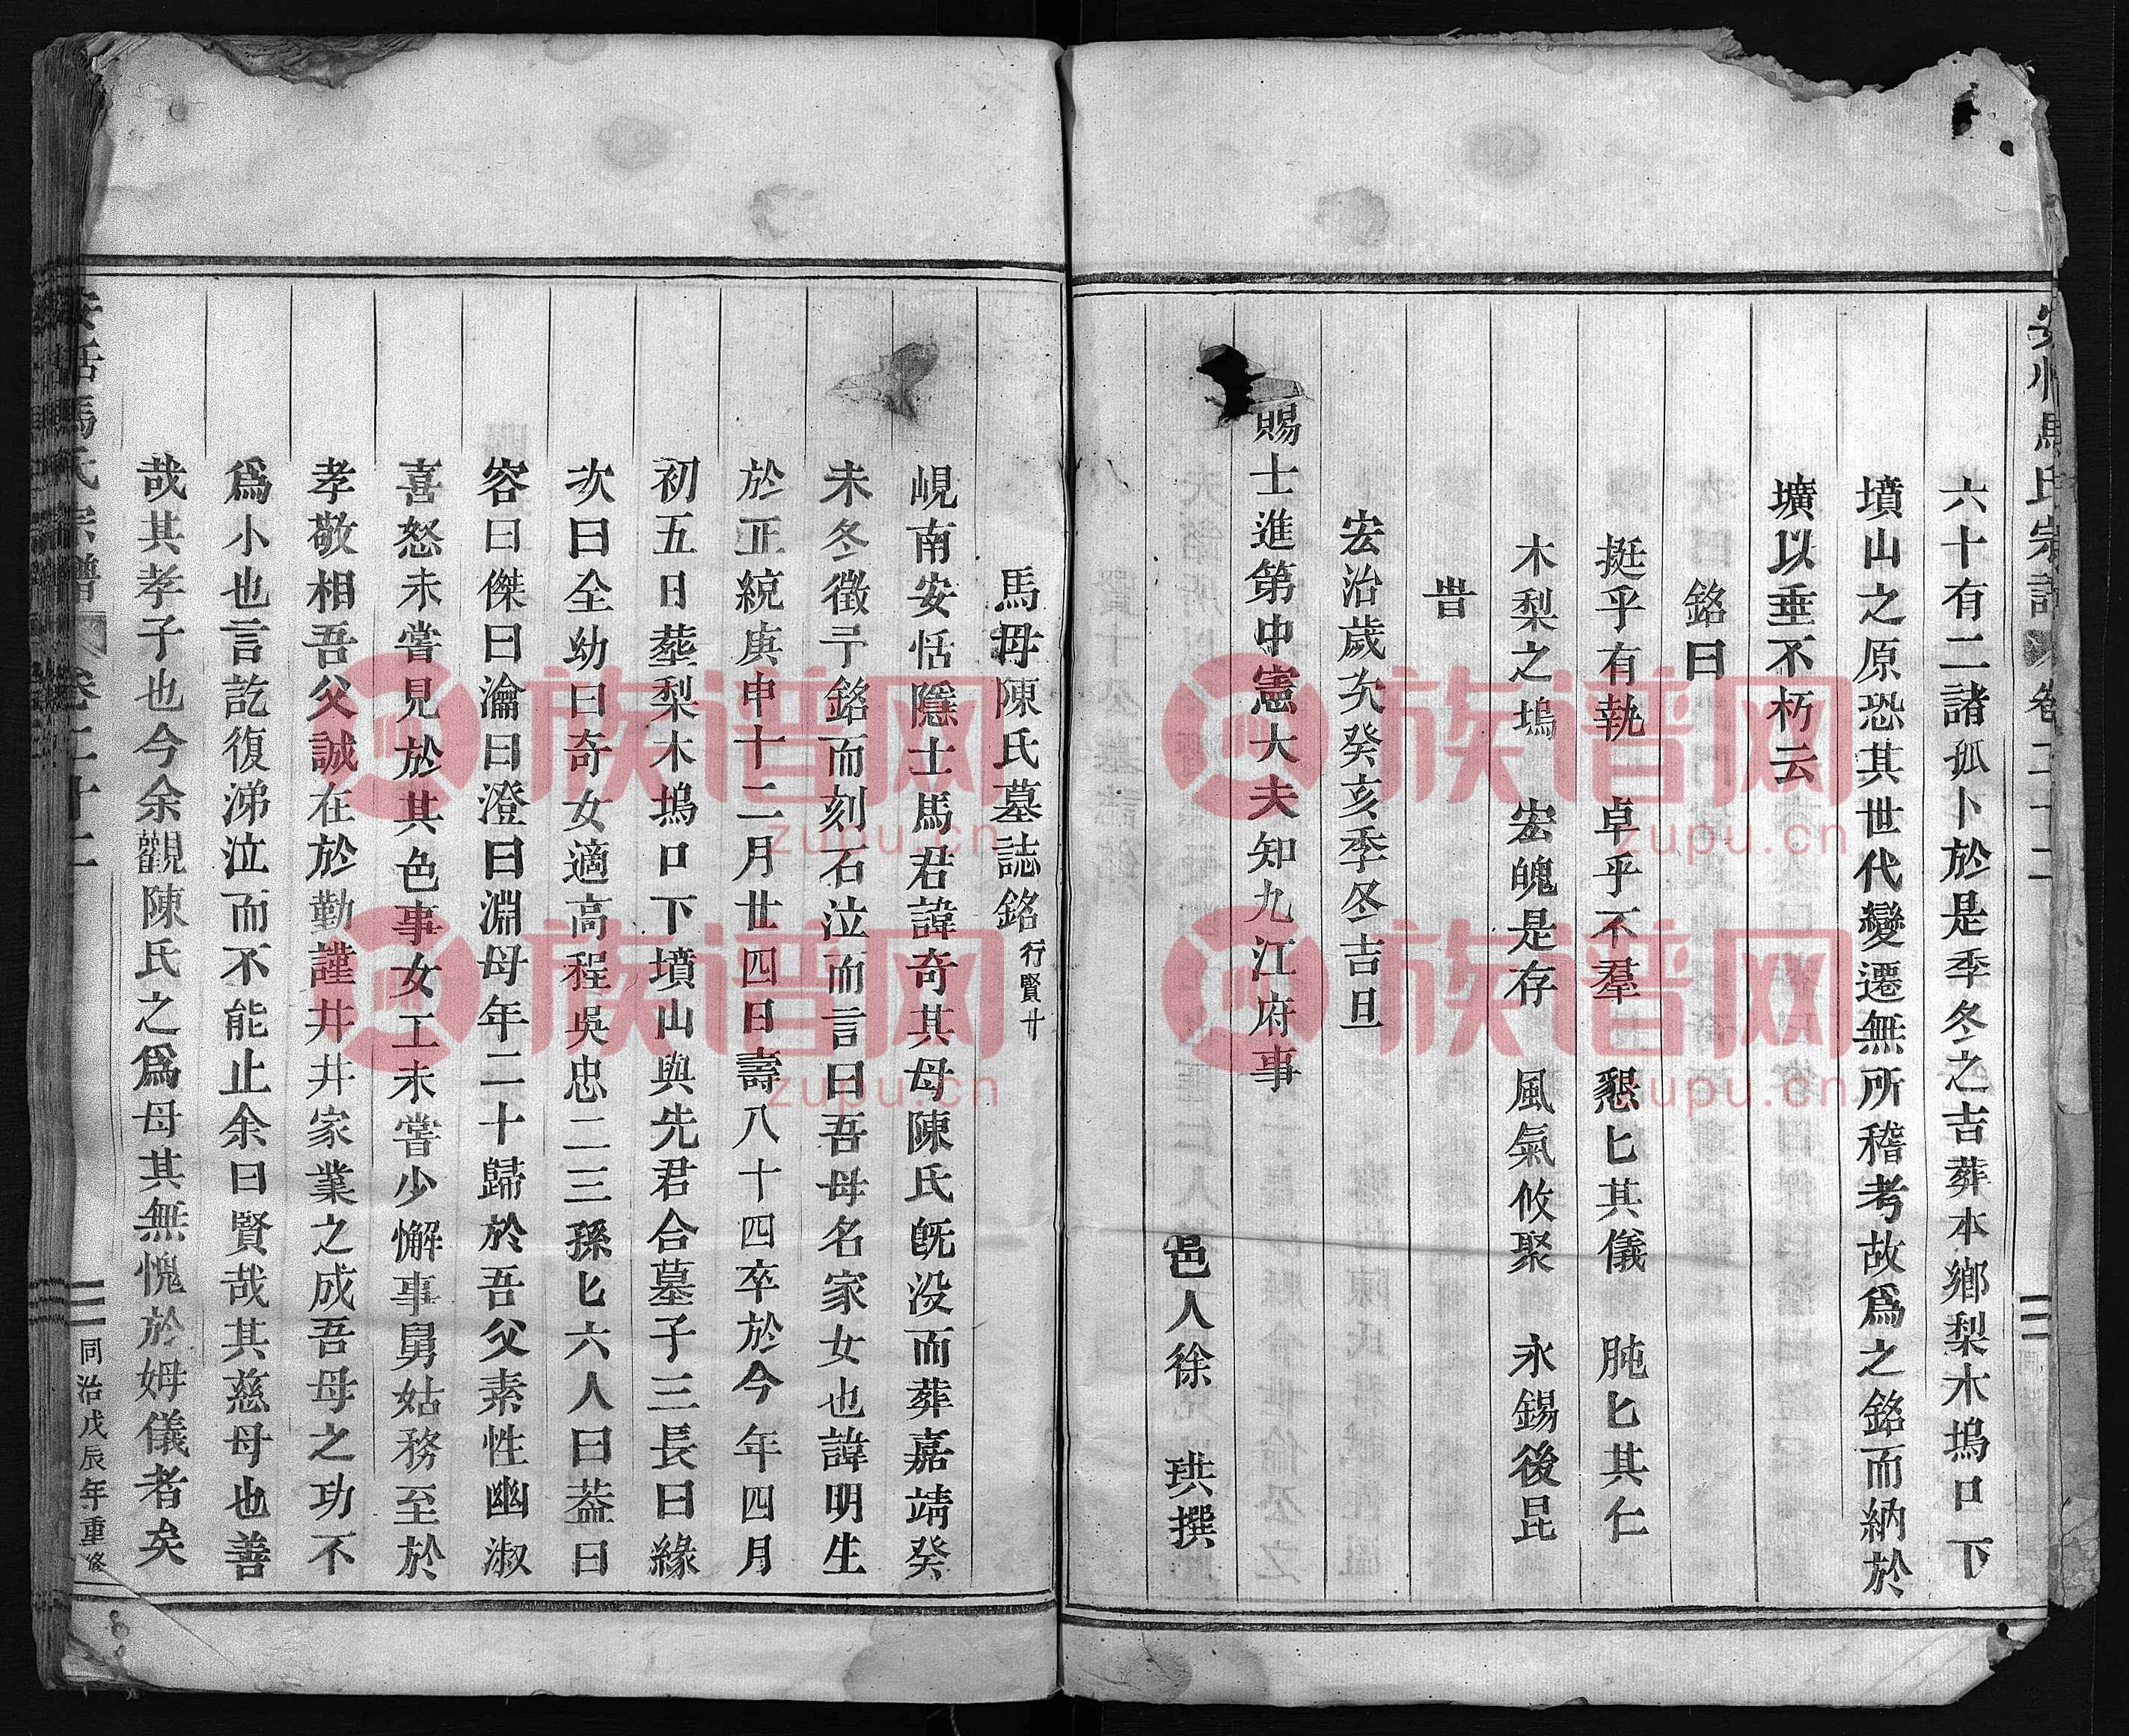 六十有二諸孤卜於是季冬之吉葬本鄉梨木塢口下
墳山之原恐其世代變遷無所稽考故爲之銘而納於
壙以垂不朽云
銘曰
挺乎有執　卓乎不羣　懇匕其儀　肫匕其仁
木梨之塢　宏魄是存　風氣攸聚　永錫後昆
旹
宏治歲次癸亥季冬吉旦
賜士進第中憲大夫知九江府事
邑人徐　珙撰
馬母陳氏墓誌銘行賢十
峴南安恬隱士馬君諱奇其母陳氏旣没而葬嘉靖癸
未冬徵予銘而刻石泣而言曰吾母名家女也諱明生
於正統庚申十二月廿四日壽八十四卒於今年四月
初五日塟梨木塢口下墳山與先君合墓子三長曰緣
次曰全幼曰奇女適高程吳忠二三孫匕六人曰葢曰
容曰傑曰瀹曰澄曰淵母年二十歸於吾父素性幽淑
喜怒未嘗見於其色事女工未嘗少懈事舅姑務至於
孝敬相吾父誠在於勤謹井井家業之成吾母之功不
爲小也言訖復涕泣而不能止余曰賢哉其慈母也善
哉其孝子也今余觀陳氏之爲母其無愧於姆儀者矣
安恬馬氏宗譜　卷二十二
同治戊辰年重修
族谱网
zupu.cn
族谱网
zupu.cn
族谱网
zupu.cn
族谱网
zupu.cn